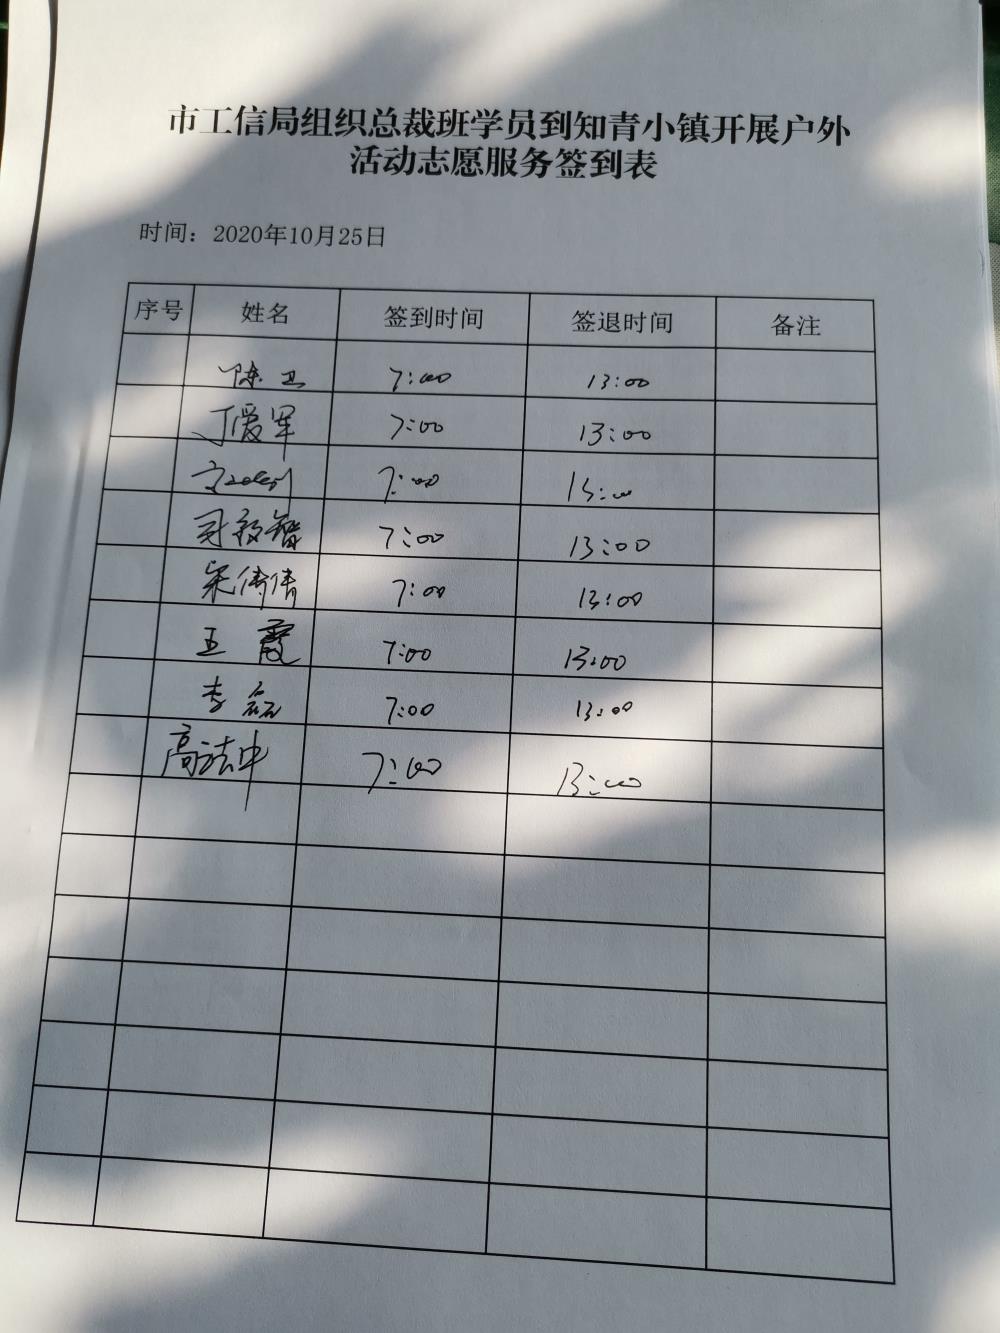 市工信局组织总裁班学员到知青小镇开展户外
活动志愿服务签到表
时间：2020年10月25日
序号 姓名 签到时间 签退时间 备注
陈卫 7:00 13:00
丁爱军 7:00 13:00
7:00 13:00
7:00 13:00
宋倩倩 7:00 13:00
王霞 7:00 13:00
李磊 7:00 13:00
高法中 7:00 13:00